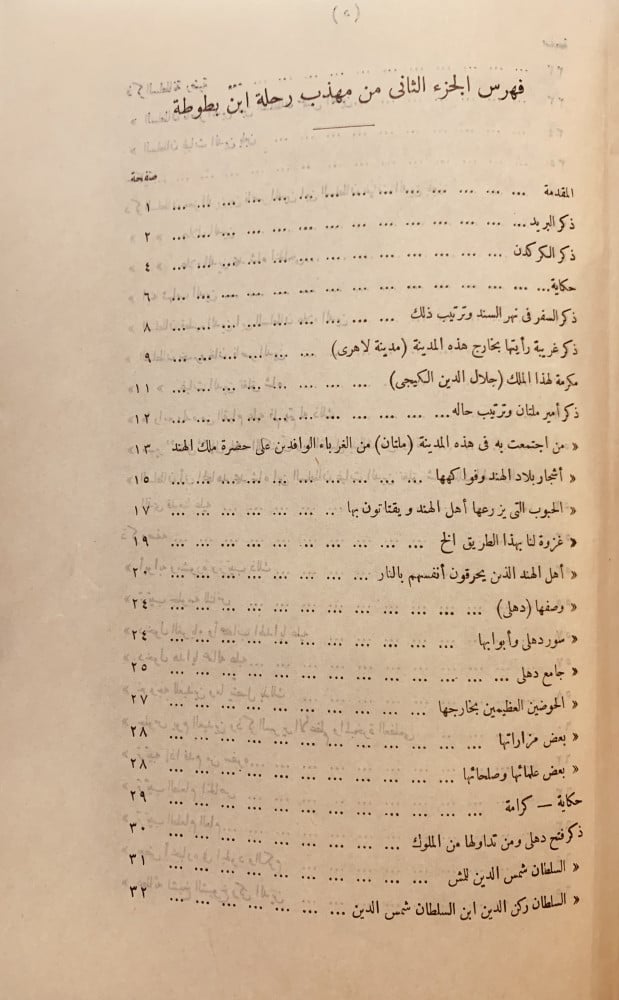 (٥)
فهرس الجزء الثانى من مهذب رحلة ابن بطوطة
صفحة
المقدمة ... ١
ذكر البريد ... ٢
ذكر الكركدن ... ٤
حكاية ... ٦
ذكر السفر فى نهر السند وترتيب ذلك ... ٨
ذكر غريبة رأيتها بخارج هذه المدينة (مدينة لاهرى) ... ٩
مكرمة لهذا الملك (جلال الدين الكيجى) ... ١١
ذكر أمير ملتان وترتيب حاله ... ١٢
« من اجتمعت به فى هذه المدينة (ملتان) من الغرباء الوافدين على حضرة ملك الهند ١٣
« أشجار بلاد الهند وفواكهها ... ١٥
« الحبوب التى يزرعها أهل الهند ويقتاتون بها ... ١٧
« غزوة لنا بهذا الطريق الخ ... ١٩
« أهل الهند الذين يحرقون أنفسهم بالنار ... ٢٠
« وصفها (دهلى) ... ٢٤
« سور دهلى وأبوابها ... ٢٤
« جامع دهلى ... ٢٥
« الحوضين العظيمين بخارجها ... ٢٧
« بعض مزاراتها ... ٢٨
« بعض علمائها وصلحائها ... ٢٨
حكاية — كرامة ... ٢٩
ذكر فتح دهلى ومن تداولها من الملوك ... ٣٠
« السلطان شمس الدين للمش ... ٣١
« السلطان ركن الدين ابن السلطان شمس الدين ... ٣٢